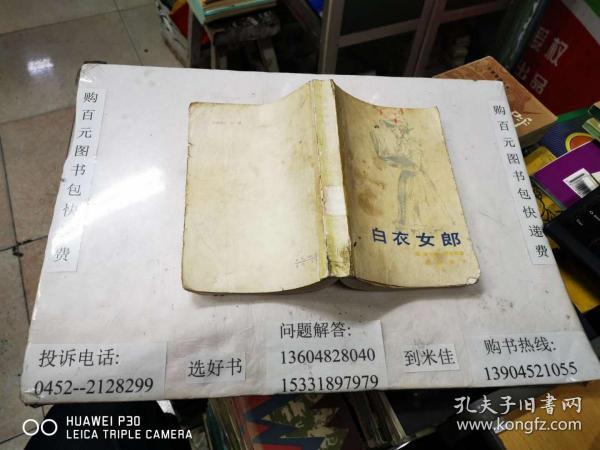 授权
出品
购百元图书包快递费
购百元图书包快递费
白衣女郎
投诉电话:
0452--2128299
选好书
问题解答:
13604828040
15331897979
到米佳
购书热线:
13904521055
HUAWEI P30
LEICA TRIPLE CAMERA
孔夫子旧书网
www.kongfz.com